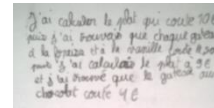 J'ai calculer le plat qui coute 10€
puis j'ai trouvais que chaque gateau
à la fraise et à la vanille coute
puis j'ai calculais le plat a 9€
et j'ai trouvé que le gateau au
chocolat coute 4€